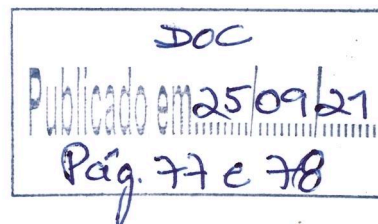 DOC
Publicado em 25/09/21
Pág. 77 e 78